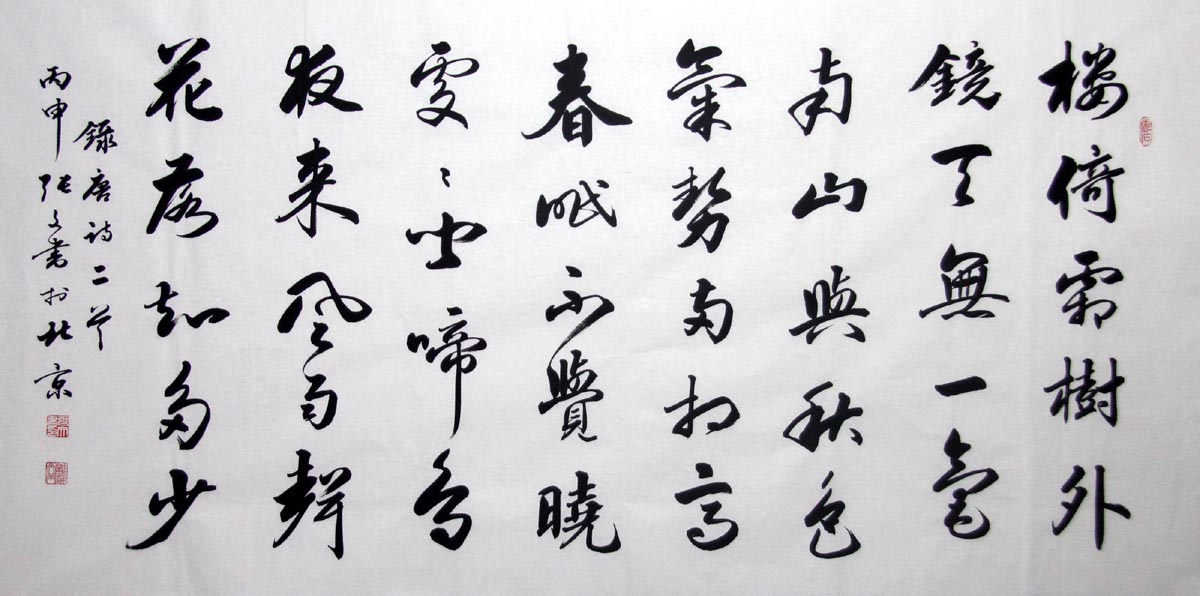 楼倚霜樹外
鏡天無一毫
南山與秋色
氣勢兩相高
春眠不覺曉
處處聞啼鳥
夜来風雨聲
花落知多少
錄唐诗二首
丙申張文書於北京